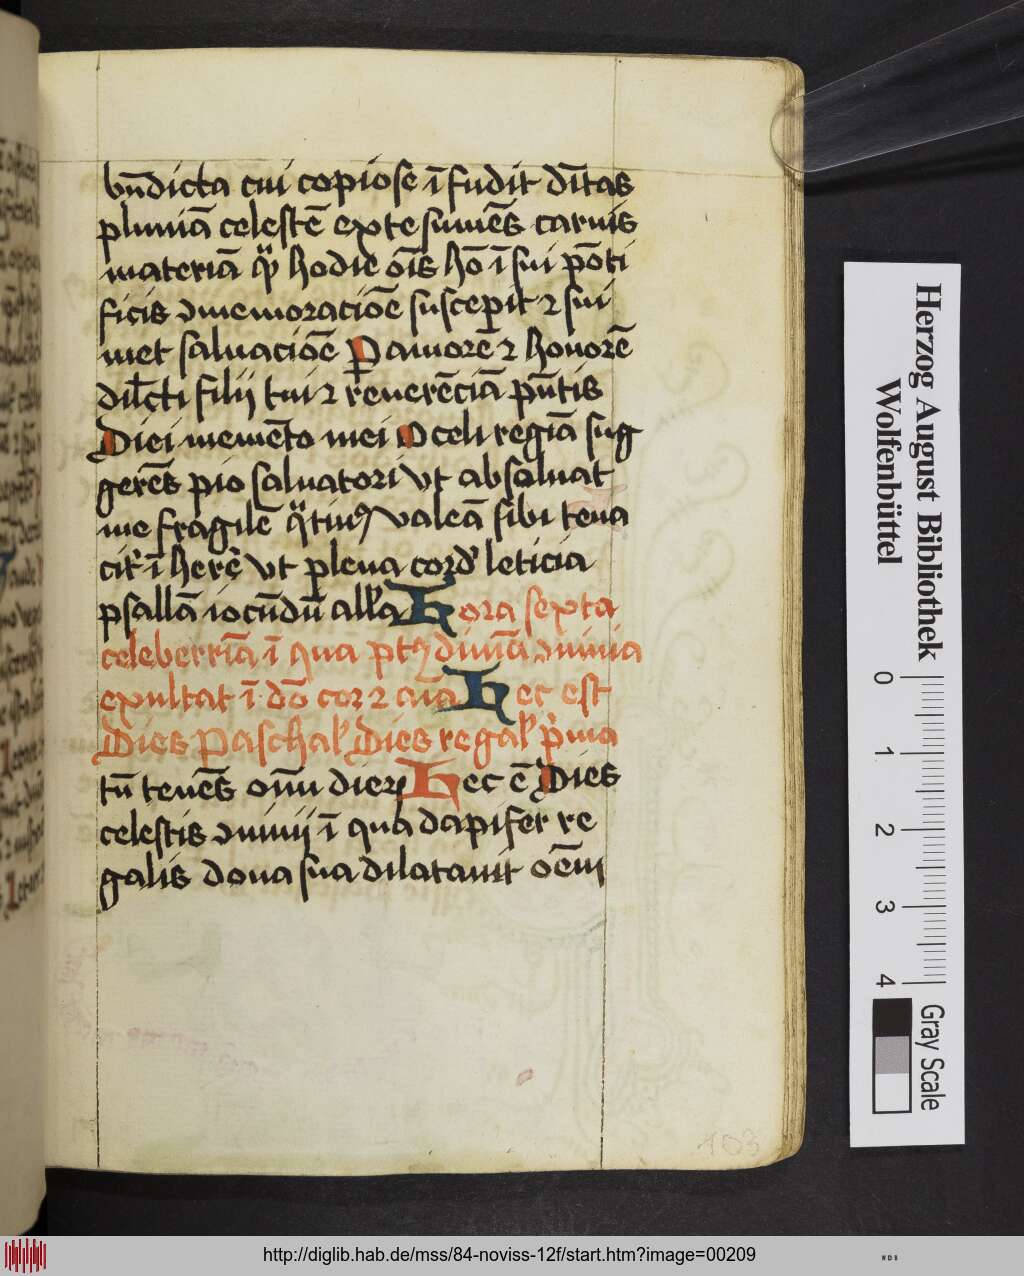 bn̄dicta cui copiose ī fudit dītas
pluuiā celestē ex te sumēs carnis
materiā hodie oīs hō ī sui pōti
ficis memoraciōe suscepit ⁊ sui
met saluaciōe P amorē ⁊ honorē
dilcti filij tui ⁊ reuerēciā pn̄tis
Diei memēto mei O celi regia sug
gerēs pio saluatori vt absoluat
me fragilē valeā sibi tena
citr ī herē vt plena cord leticia
psallā iocūdū alla Hora sexta
celeberria ī qua diuīa
exultat ī dō cor ⁊ aīa Hec est
Dies Paschal Dies regal pma
tū tenēs oīm dier Hec ē Dies
celestis ī qua dapifer re
galis dona sua dilatauit oēm
103
Herzog August Bibliothek
Wolfenbüttel
0 1 2 3 4
Gray Scale
http://diglib.hab.de/mss/84-noviss-12f/start.htm?image=00209